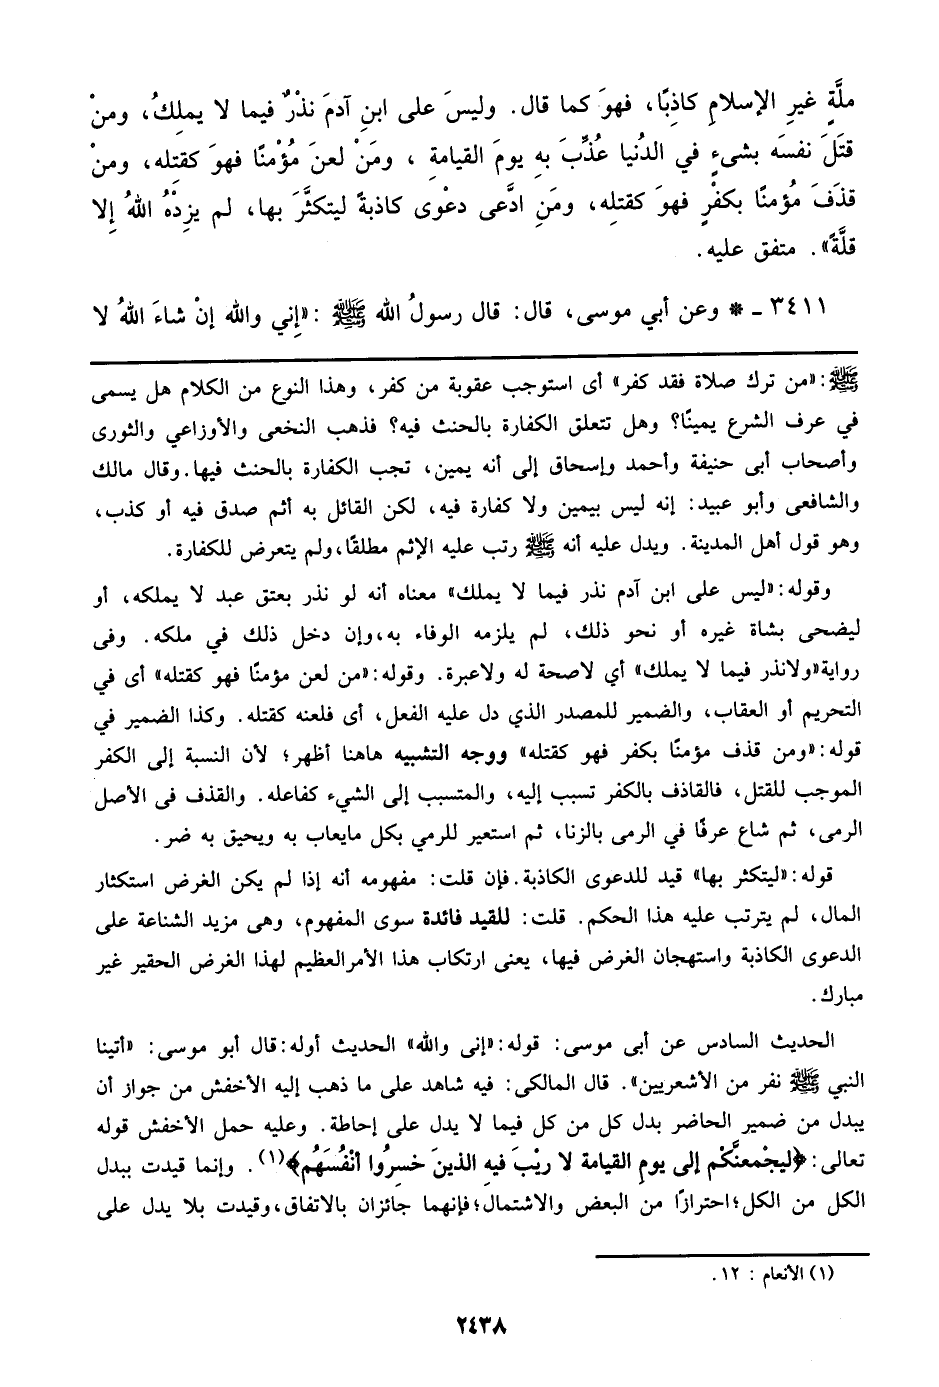 ملَّةٍ غيرِ الإسلامِ كاذِبًا، فهوَ كما قال. وليسَ على ابنِ آدمَ نذْرٌ فيما لا يملِكُ، ومنْ
قتَلَ نفسَه بشىءٍ في الدُنيا عُذِّبَ بهِ يومَ القيامةِ ، ومَنْ لعنَ مؤْمنًا فهوَ كقتلِه، ومنْ
قذَفَ مُؤمنًا بكفْرٍ فهوَ كقتلِه، ومَنِ ادَّعى دعْوى كاذبةً ليتكثَّرَ بها، لم يزِدْهُ اللهُ إِلا
قلَّةً». متفق عليه.
٣٤١١ ـ * وعن أبي موسى، قال: قال رسولُ الله ﷺ :«إِني والله إنْ شاءَ اللهُ لا
ﷺ:«من ترك صلاة فقد كفر» أى استوجب عقوبة من كفر، وهذا النوع من الكلام هل يسمى
في عرف الشرع يمينًا؟ وهل تتعلق الكفارة بالحنث فيه؟ فذهب النخعى والأوزاعي والثورى
وأصحاب أبى حنيفة وأحمد وإسحاق إلى أنه يمين، تجب الكفارة بالحنث فيها.وقال مالك
والشافعى وأبو عبيد: إنه ليس بيمين ولا كفارة فيه، لكن القائل به أثم صدق فيه أو كذب،
وهو قول أهل المدينة. ويدل عليه أنه ﷺ رتب عليه الإثم مطلقًا،ولم يتعرض للكفارة.
وقوله:«ليس على ابن آدم نذر فيما لا يملك» معناه أنه لو نذر بعتق عبد لا يملكه، أو
ليضحى بشاة غيره أو نحو ذلك، لم يلزمه الوفاء به،وإن دخل ذلك في ملكه. وفى
رواية«ولانذر فيما لا يملك» أي لاصحة له ولاعبرة. وقوله:«من لعن مؤمنًا فهو كقتله» أى في
التحريم أو العقاب، والضمير للمصدر الذي دل عليه الفعل، أى فلعنه كقتله. وكذا الضمير في
قوله:«ومن قذف مؤمنًا بكفر فهو كقتله» ووجه التشبيه هاهنا أظهر؛ لأن النسبة إلى الكفر
الموجب للقتل، فالقاذف بالكفر تسبب إليه، والمتسبب إلى الشيء كفاعله. والقذف فى الأصل
الرمى، ثم شاع عرفًا في الرمى بالزنا، ثم استعير للرمي بكل مايعاب به ويحيق به ضر.
قوله:«ليتكثر بها» قيد للدعوى الكاذبة.فإن قلت: مفهومه أنه إذا لم يكن الغرض استكثار
المال، لم يترتب عليه هذا الحكم. قلت: للقيد فائدة سوى المفهوم، وهى مزيد الشناعة على
الدعوى الكاذبة واستهجان الغرض فيها، يعنى ارتكاب هذا الأمرالعظيم لهذا الغرض الحقير غير
مبارك.
الحديث السادس عن أبى موسى: قوله:«إنى والله» الحديث أوله:قال أبو موسى: «أتينا
النبي ﷺ نفر من الأشعريين». قال المالكى: فيه شاهد على ما ذهب إليه الأخفش من جواز أن
يبدل من ضمير الحاضر بدل كل من كل فيما لا يدل على إحاطة. وعليه حمل الأخفش قوله
تعالى:﴿ليجْمعنَّكْم إلى يومِ القيامة لا ريْبَ فيهِ الذينَ خسِرُوا أنْفُسَهُم﴾(١). وإنما قيدت ببدل
الكل من الكل؛احترازًا من البعض والاشتمال؛فإنهما جائزان بالاتفاق،وقيدت بلا يدل على
(١) الأنعام : ١٢.
٢٤٣٨